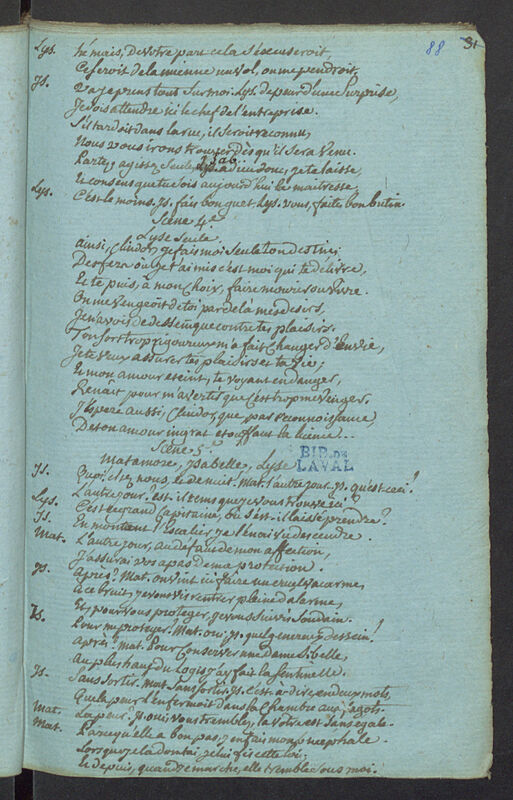 88 31
Lys. hé mais, de votre part cela s'excuseroit,
Ce seroit de la mienne un vol, on me pendroit,
Js. Va je prens tout sur moi. Lys. de peur d'une surprise,
Je dois attendre ici le chef de l'entreprise.
S'il tardoit dans la rue, il seroit reconnu,
Nous vous irons trouver dès qu'il sera venu.
Partez, agissez seule, Isab. adieu donc, je te laisse,
Et consens que tu sois aujourd'hui la maitresse,
Lys. C'est le moins. Js. fais bon guet. Lys. vous, faite bon butin.
Scène 4e
Lyse seule
ainsi, Clindor, je fais moi seule ton destin;
Des fers où je t'ai mis c'est moi qui te délivre,
Et te puis, à mon choix, faire mourir ou vivre.
On me vengeoit de toi par de là mes desirs,
Je n'avois de dessein que contre tes plaisirs.
Ton sort trop rigoureux m'a fait changer d'envie,
Je te veux assurer tes plaisirs et ta vie;
Et mon amour éteint, te voyant en danger,
Renait pour m'avertir que c'est trop me vanger.
J'espere aussi, Clindor, que pas reconnoissance,
De ton amour ingrat étouffant la licence...
Scène 5e
Matamore, ysabelle, Lyse
BIB. DE LAVAL
Js. Quoi! chez nous, et de nuit. Mat. l'autre jour. Js. qu'est ceci?
L'autre jour. est-il tems que je vous trouve ici?
Lys. C'est ce grand Capitaine, où s'est-il laissé prendre?
Js. En montant l'Escalier je l'en ai vu descendre.
Mat. L'autre jour, au défaut de mon affection,
J'assurai vos apas de ma protection.
Js. Après? Mat. on vint ici faire un cruel vacarme,
A ce bruit, je vous vis rentrer pleine d'alarme,
Et, pour vous proteger, je vous suivis soudain.
Js. Pour me proteger? Mat. oui. Js. quel genereux dessein!
Après? Mat. Pour conserver une Dame si belle,
Au plus haut du logis j'ay fait la sentinelle.
Js. Sans sortir. Mat. sans sortir. Js. c'est-à-dire en deux mots,
Que la peur l'enfermoit dans la Chambre aux fagots.
Mat. La peur. Js. oui, vous tremblez, la votre est sans égale.
Mat. Parce qu'elle a bon pas, j'en fais mon Bucephale.
Lorsque je la domtai, je lui fis cette loi;
Et depuis, quand je marche, elle tremble sous moi.